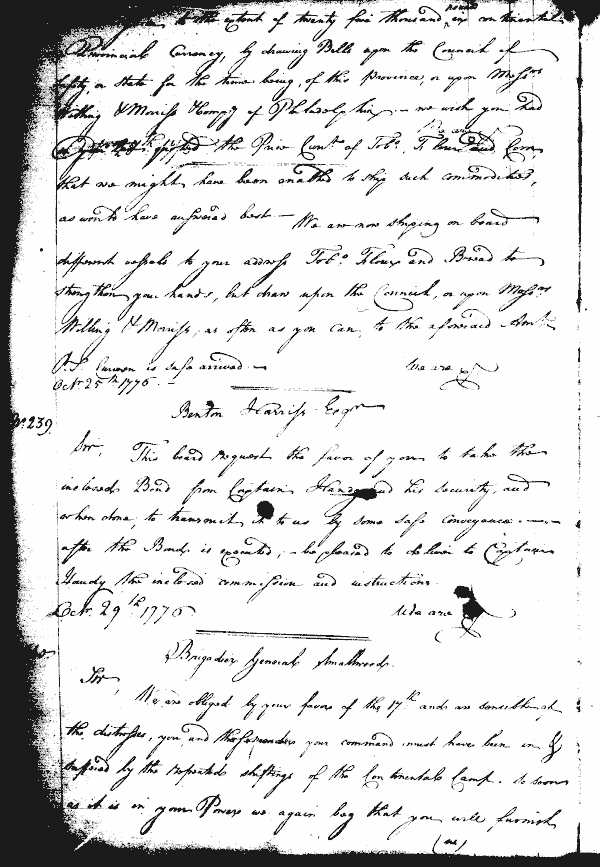 to the extent of twenty five thousand pounds in continental
Provincial Currency, by drawing Bills upon the Council of
Safety, or state for the time being, of this province, or upon Messrs
Willing & Morriss Compy of Philadelphia — we wish you had
the Price Curt of Tobo, Flour and Corn
that we might have been enabled to ship such commodities,
as would have answered best — We are now shiping on board
different vessels to your address Tobo Flour and Bread to
strengthen your hands, but draw upon the Council, or upon Messrs
Willing & Morriss, as often as you can, to the aforesaid Amt.
P.S. is safe arrived — We are &
Octr 25th 1776. —
Benton Harriss Esqr
No. 239.
Sir, This board request the favor of you to take the
inclosed Bond from Captain Handy and his security, and
when done, to transmit it to us by some safe conveyance. —
after the Bond is executed, be pleased to deliver to Captain
Handy the inclosed commission and instructions.
Octr. 29th 1776 We are &
Brigadier General Smallwood.
Sir,
We are obliged by your favor of the 17th and are sensible of
the distresses, you and those under your command must have been in &
suffered by the repeated shiftings of the Continental Camp. So soon
as it is in your Power we again beg that you will furnish
(us)